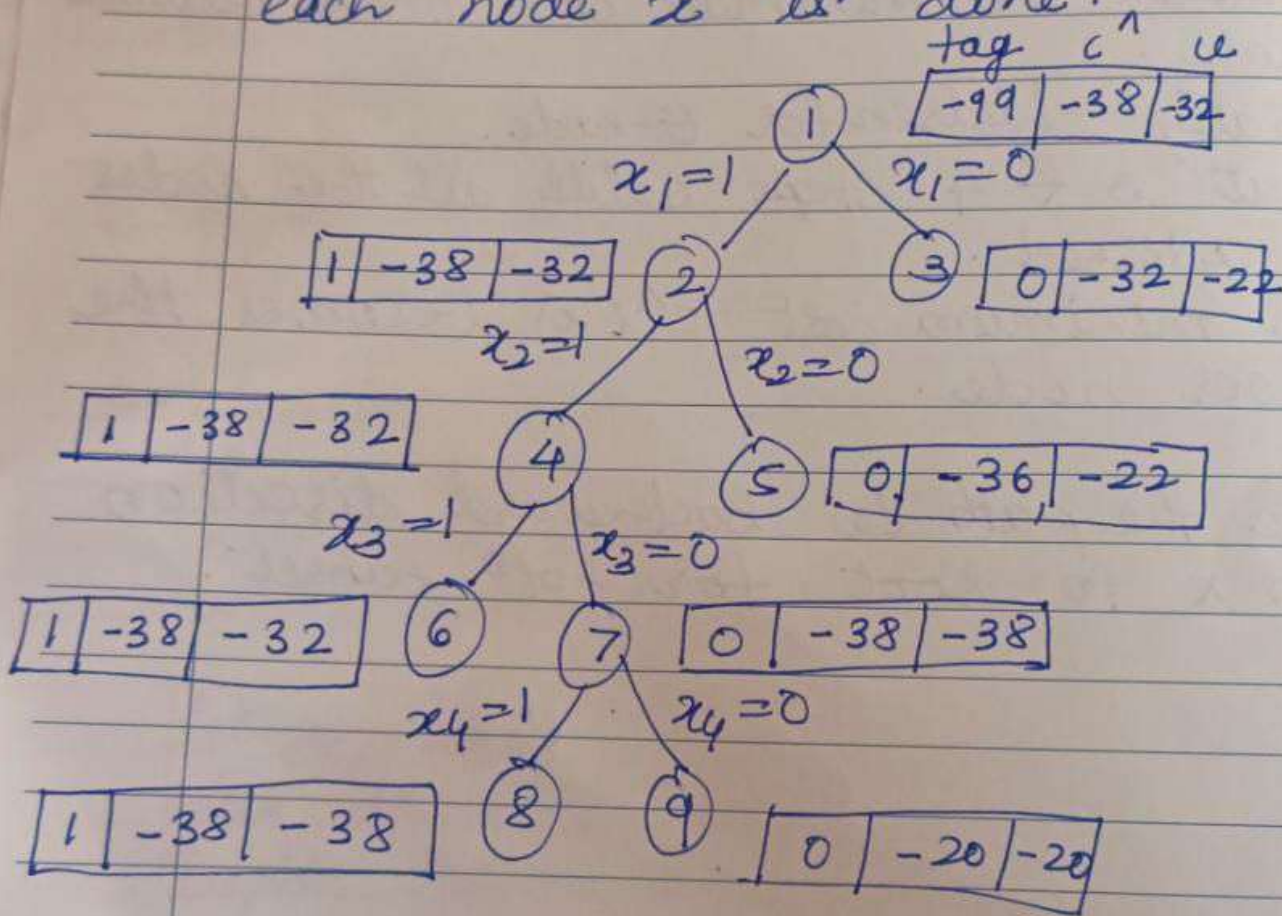 each node x is done.
tag c^ u
1 -99 -38 -32
x1=1 x1=0
1 -38 -32 2 3 0 -32 -22
x2=1 x2=0
1 -38 -32 4 5 0 -36 -22
x3=1 x3=0
1 -38 -32 6 7 0 -38 -38
x4=1 x4=0
1 -38 -38 8 9 0 -20 -20